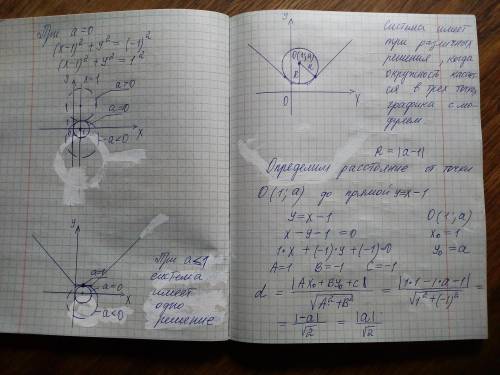 При a=0
(x-1)² + y² = (-1)²
(x-1)² + y² = 1²
y
x=1
a>0
a=0
x
-a<0
y
a=1
a=0
x
-a<0
При a≤1
система
имеет
одно
решение
y
O(1;a)
R
R
O
Система имеет
три различных
решения, когда
окружность касает
ся в трех точк.
графика с мо-
дулем.
R = |a-1|
Определим расстояние от точки
O(1; a) до прямой y=x-1
y = x - 1
x - y - 1 = 0
1·x + (-1)·y + (-1)=0
A=1 B=-1 C=-1
O(1; a)
x₀ = 1
y₀ = a
d = |Ax₀+By₀+c| / √(A²+B²) = |1·1-1·a-1| / √(1²+(-1)²) =
= |-a| / √2 = |a| / √2